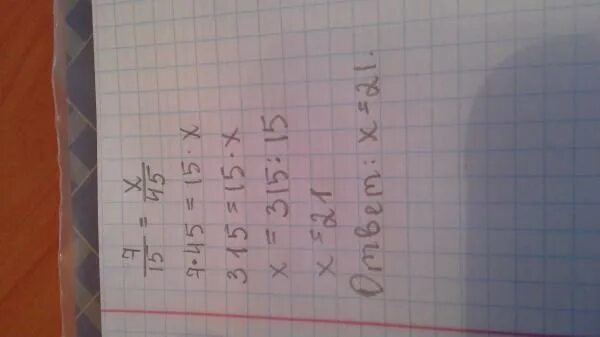 7/15 = x/45
7·45 = 15·x
315 = 15·x
x = 315:15
x = 21
Ответ: x = 21.